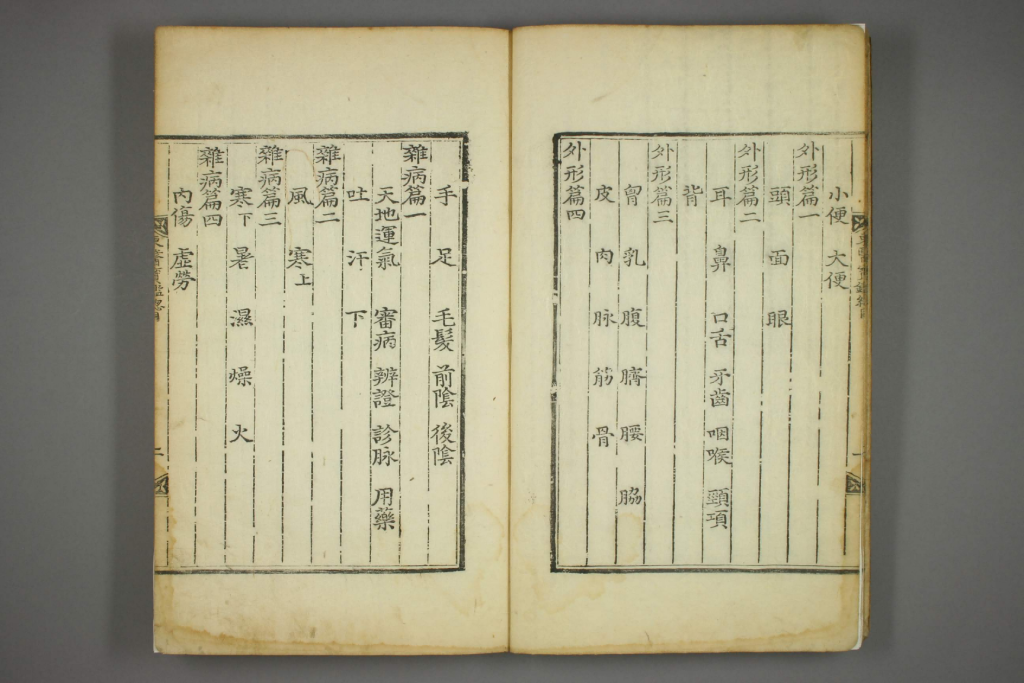 小便 大便
外形篇一
頭 面 眼
外形篇二
耳 鼻 口舌 牙齒 咽喉 頸項
背
外形篇三
胷 乳 腹 臍 腰 脇
皮 肉 脉 筋 骨
外形篇四
手 足 毛髮 前陰 後陰
雜病篇一
天地運氣 審病 辨證 診脉 用藥
吐 汗 下
雜病篇二
風 寒上
雜病篇三
寒下 暑 濕 燥 火
雜病篇四
內傷 虛勞
東醫寶鑑總目
二